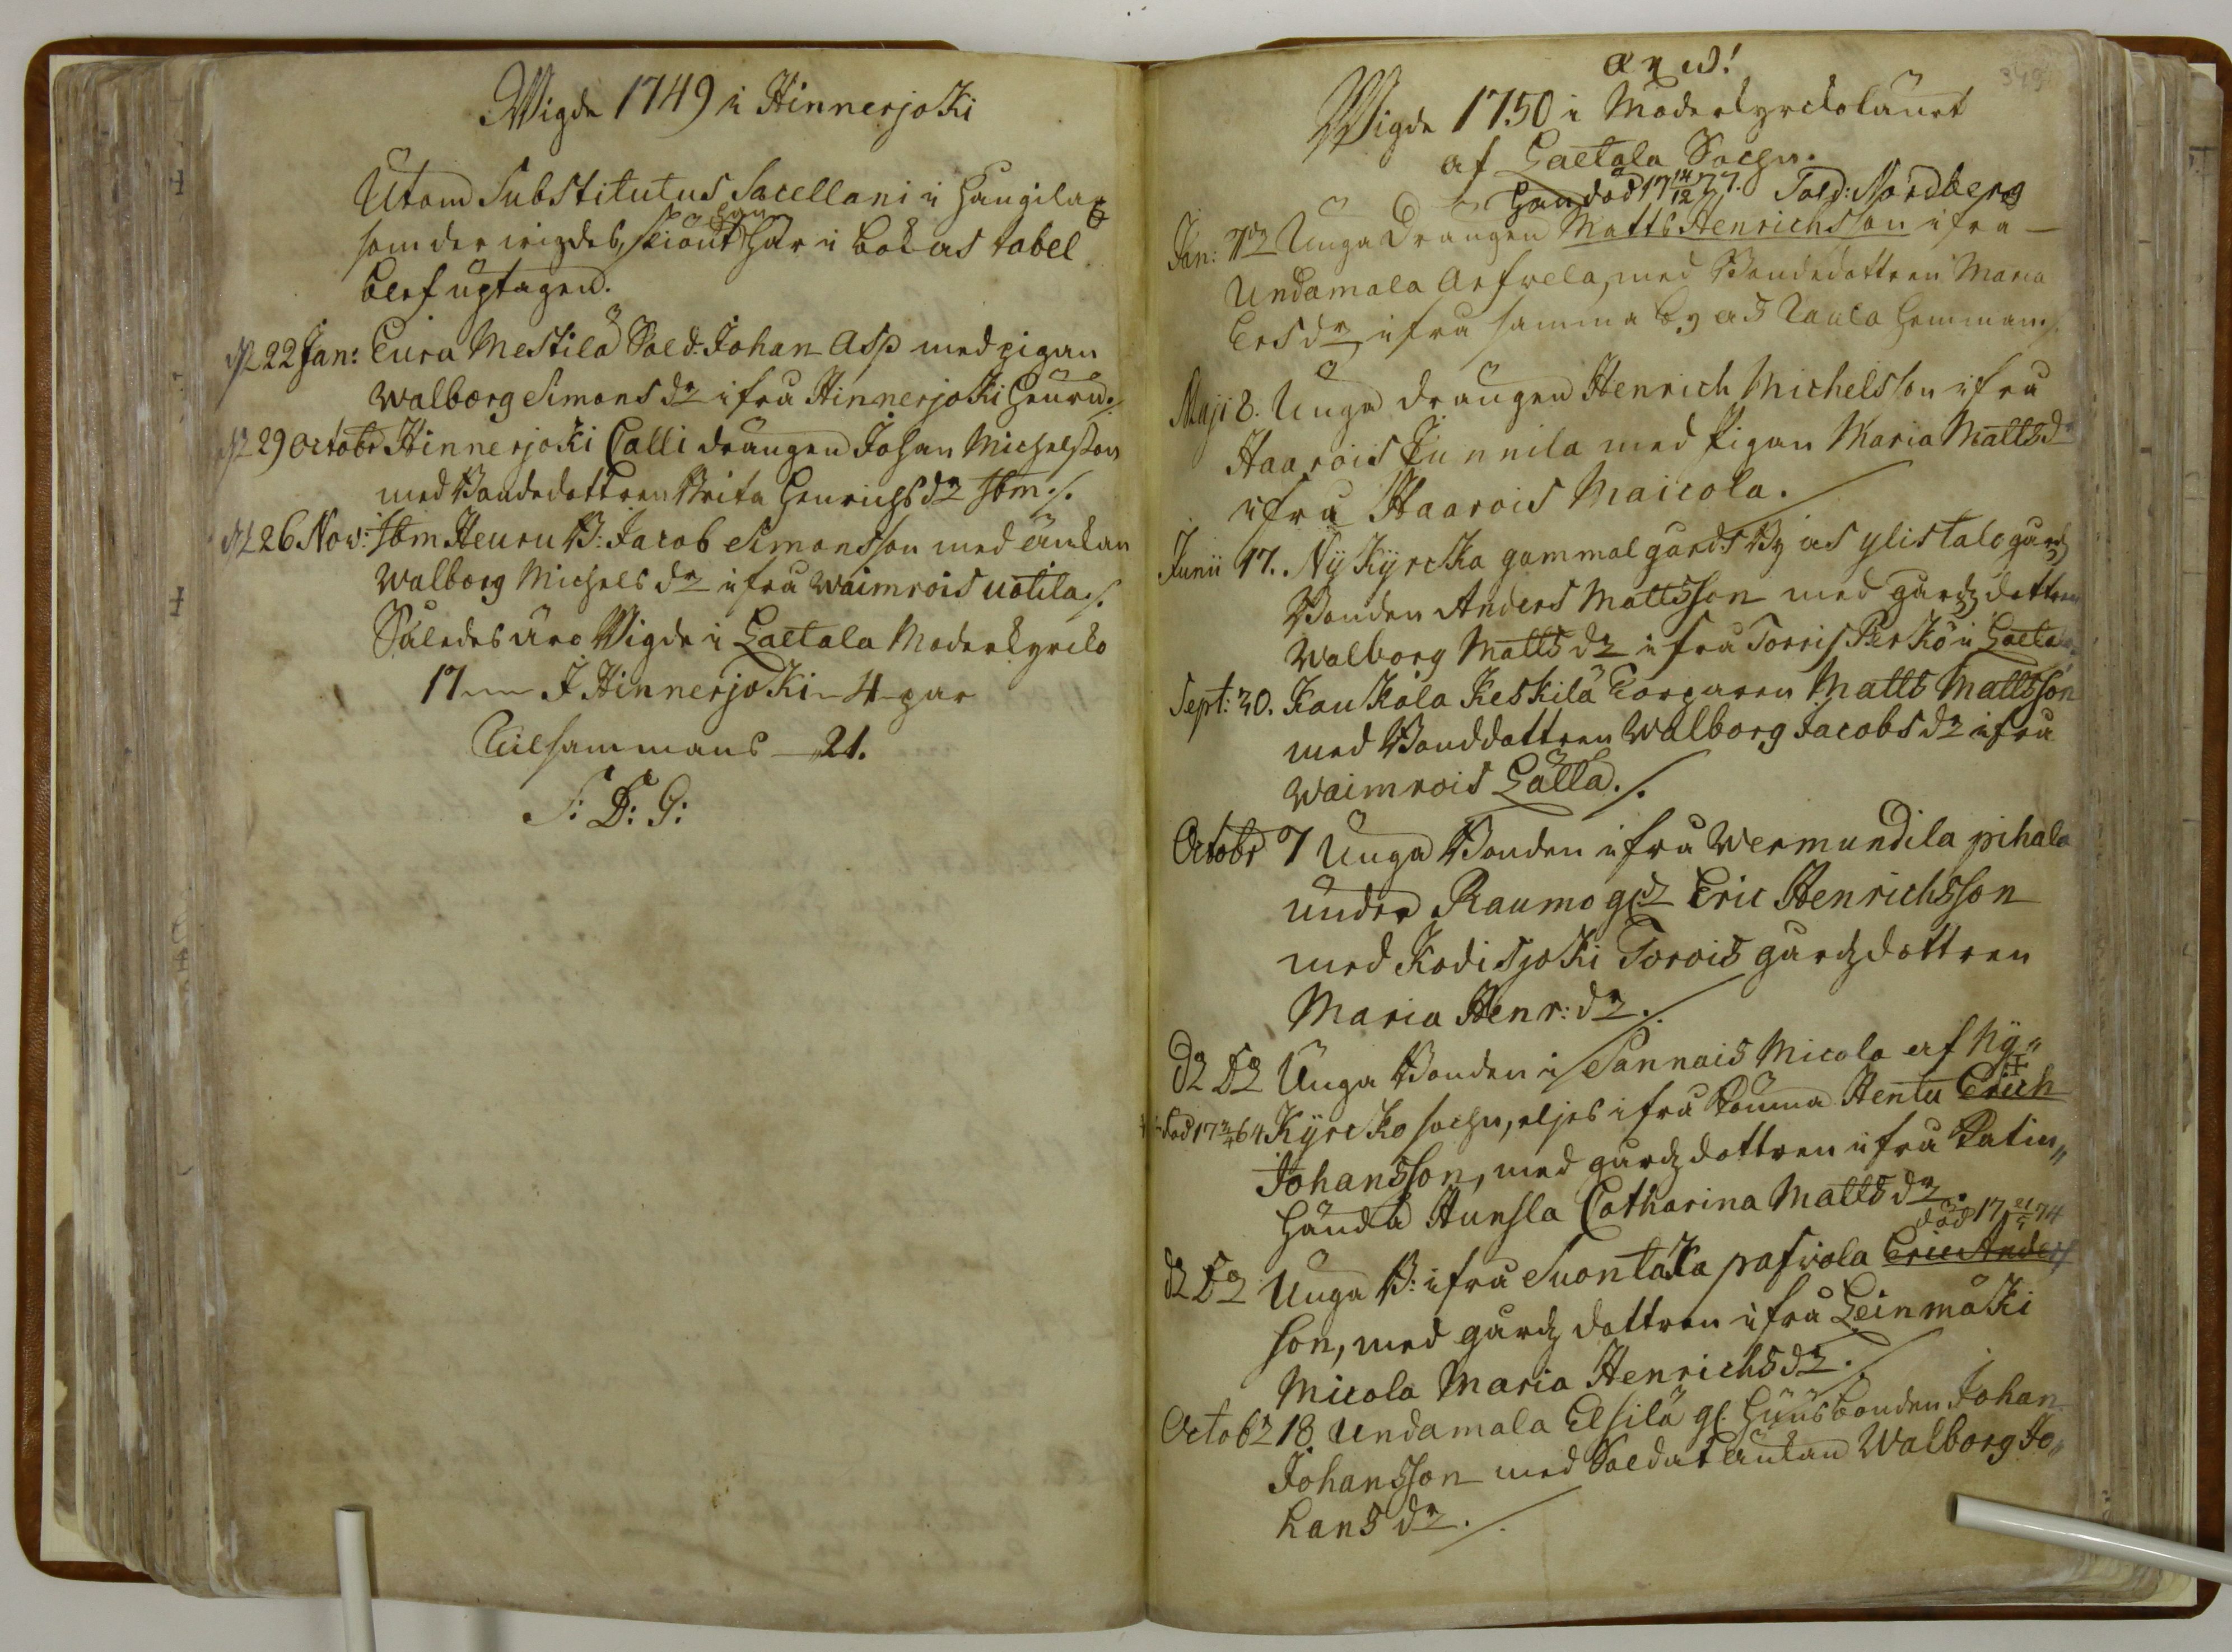 Wigde 1749 i Hinnerjoki
Utom Substitutus Sacellani i Hangilax
som der wigdes, skiönt han här i bokas tabel
blef uptagen.
d 22 Jan: Eura Mestilä Sold. Johan Asp med pigan
Walborg Simons dr ifrå Hinnerjoki Heuru ./.
d 29 Octobr Hinnerjoki Calli drängen Johan Michelsson
med Bondedottren Brita Henrichs dr ibm ./.
d 26 Nov: ibm Heuru B: Jacob Simonsson med änkan
Walborg Michels dr ifrå Waimrois uotila ./.
Således äro Wigde i Laetala Moderkyrcko
17 — I Hinnerjoki — 4 par
Tilsammans — 21.
S: D: G:
α χ ω!
349
Wigde 1750 i Moderkyrcko länet
af Laetala Sochn.
Han död 17 14/12 77. Sold: Nordberg
Jan: 7 Unga Drängen Matts Henrichsson ifrå
Undamala Arfwela, med Bondedottren Maria
Ers dr ifrå samma by as Laula hemman ./.
Maji 8. Unga drängen Henrich Michelsson ifrå
Haarois Junnila med Pigan Maria Matts dr
ifrå Haarois Maicola.
Junii 17. Nykyrcka gammalgårds By as ylistalo gård
Bonden Anders Mattsson med gårdz dottren
Walborg Matts dr ifrå Torris Perkö i Laetala.
Sept: 30. Kaukola Keskilä Torparen Matts Mattsson
med Bonddottren Walborg Jacobs dr ifrå
Waimrois Lälla ./.
Octobr 7 Unga Bonden ifrå Wermundila pihala
under Raumo gld Eric Henrichsson
med Kodisjoki Torois gårdz dottren
Maria Henr: dr ./.
do do Unga Bonden i Sannais Micola af Ny„
död 17 64 Kyrcko sochn, eljes ifrå Hentu Erich
Johansson, med gårdz dottren ifrå Katin„
händä Hunsla Catharina Matts dr.
död 17 21/5 74
do do Unga B: ifrå Suontaka pafwola Eric Anders
son, med gårdz dottren ifrå Leinmäki
Micola Maria Henrichs dr ./.
Octobr 18 Undamala Elsilä gl. husbonden Johan
Johansson med Soldat änkan Walborg Jo„
hans dr ./.